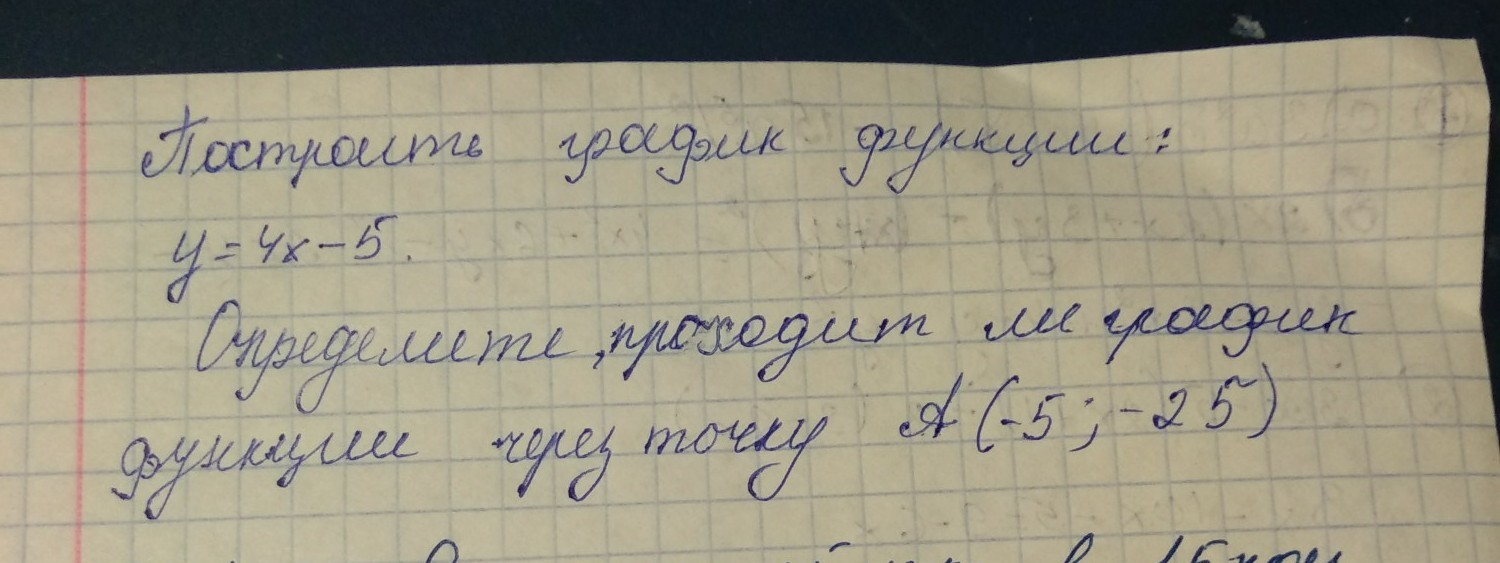 Построить график функции:
y=4x-5.
Определите, проходит ли график
функции через точку A(-5; -25)